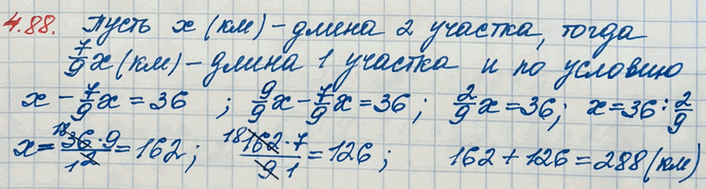 4.88. Пусть x (км) - длина 2 участка, тогда
7/9 x (км) - длина 1 участка и по условию
x - 7/9 x = 36 ; 9/9 x - 7/9 x = 36 ; 2/9 x = 36 ; x = 36 : 2/9
x = 18 36 · 9 / 1 2 = 162 ; 18 162 · 7 / 9 1 = 126 ; 162 + 126 = 288 (км)